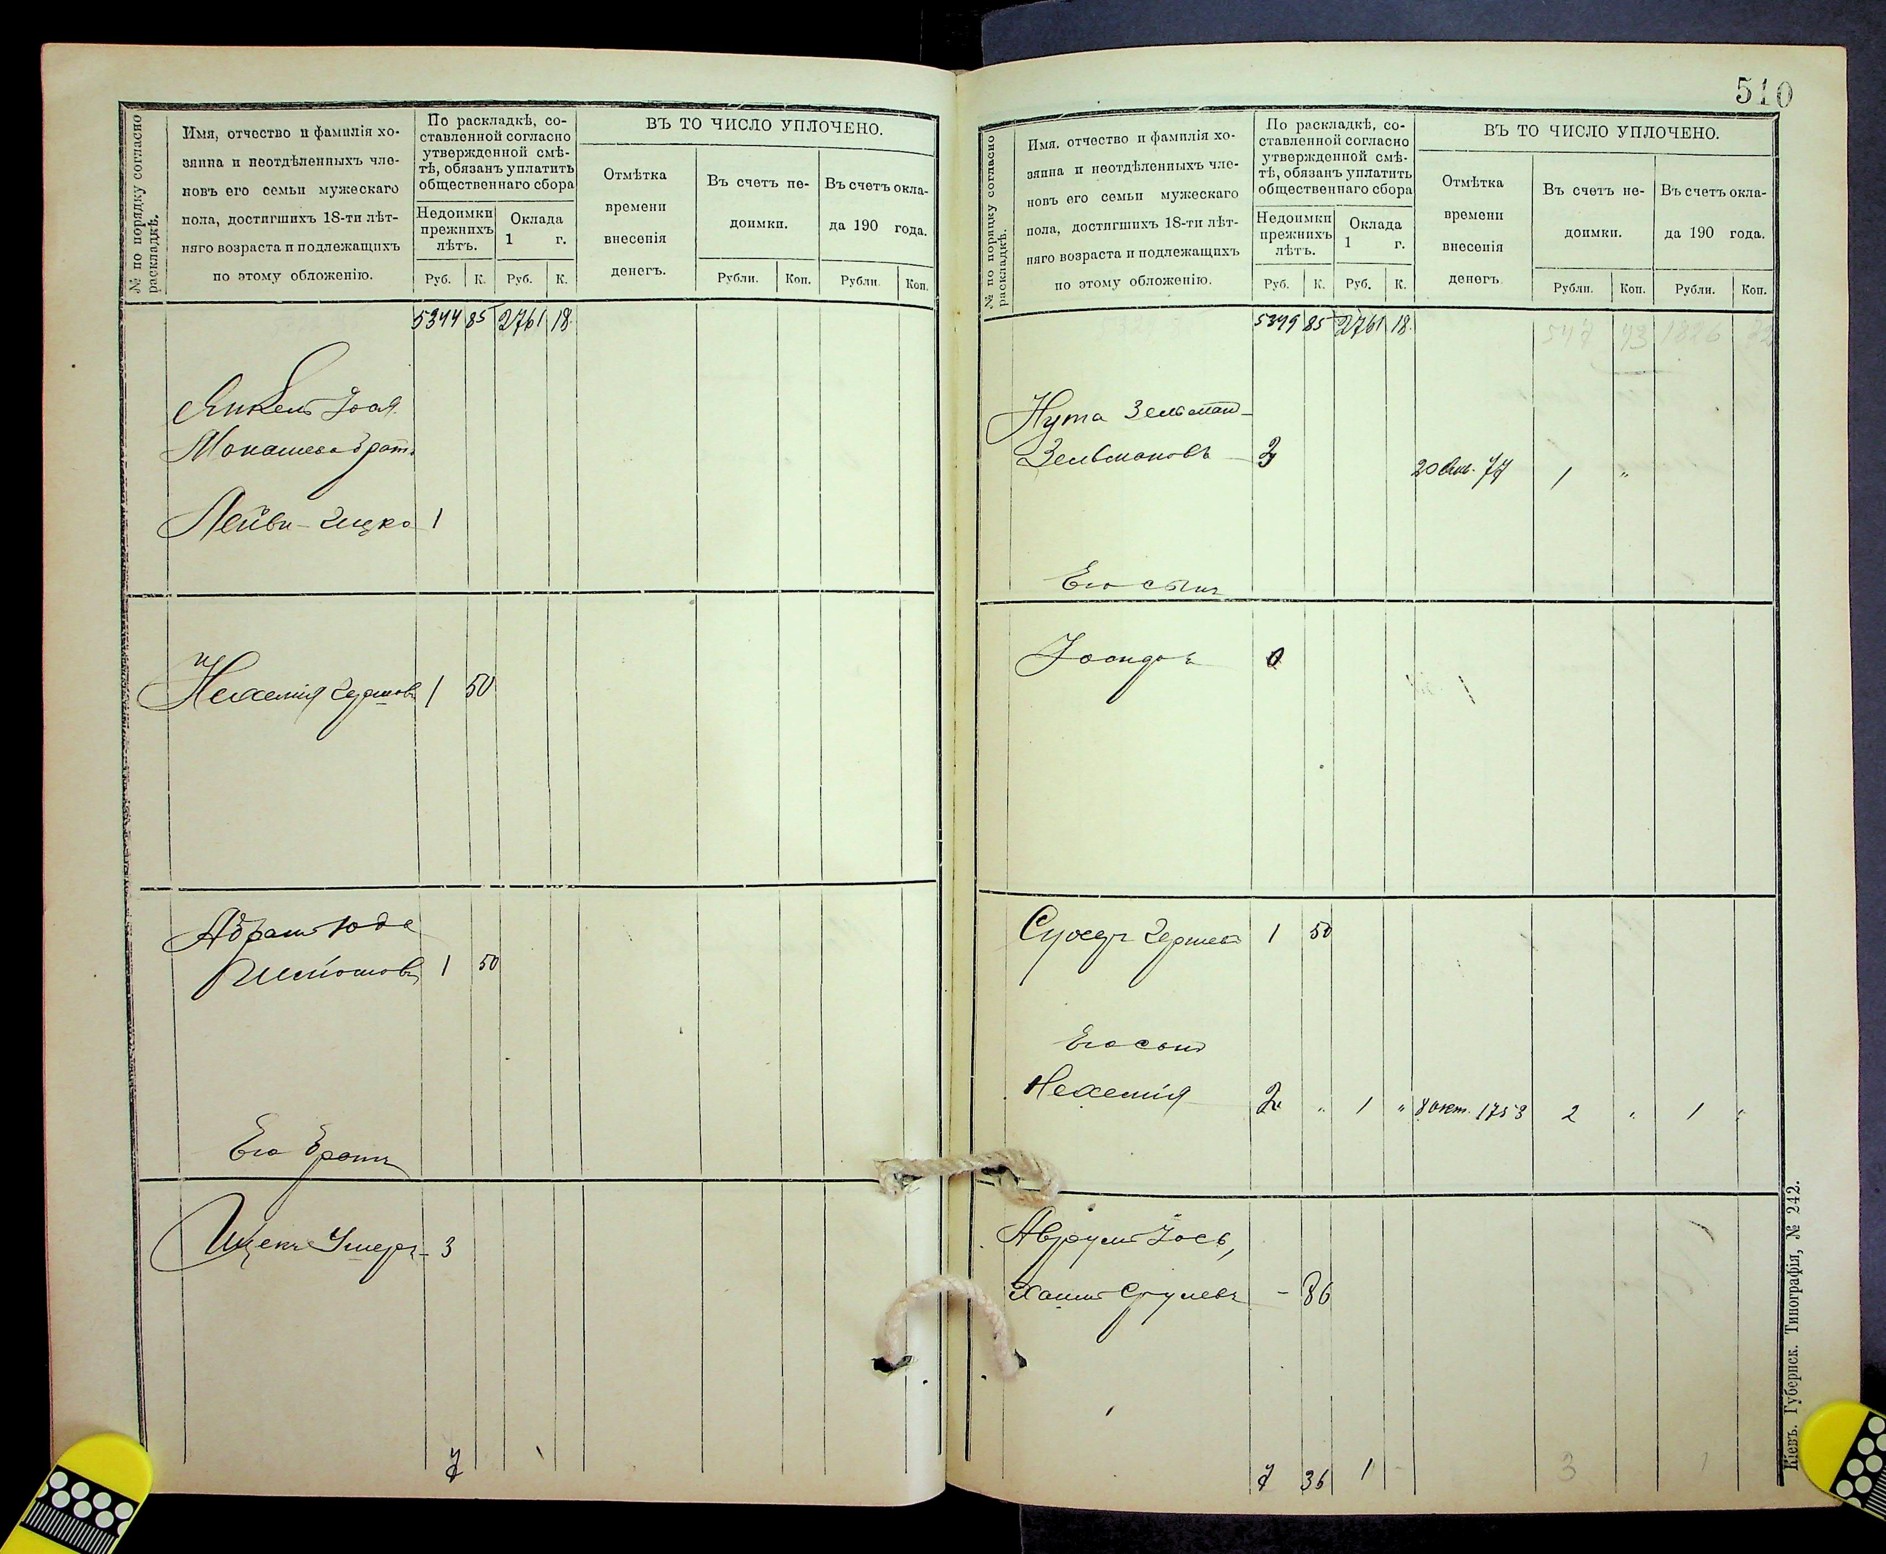 510
№ по порядку согласно раскладкѣ.
Имя, отчество и фамилія хо-
зяина и неотдѣленныхъ чле-
новъ его семьи мужескаго
пола, достигшихъ 18-ти лѣт-
няго возраста и подлежащихъ
по этому обложенію.
По раскладкѣ, со-
ставленной согласно
утвержденной смѣ-
тѣ, обязанъ уплатить
общественнаго сбора
Недоимки
прежнихъ
лѣтъ.
Оклада
1 г.
Руб. К. Руб. К.
ВЪ ТО ЧИСЛО УПЛОЧЕНО.
Отмѣтка
времени
внесенія
денегъ.
Въ счетъ не-
доимки.
Въ счетъ окла-
да 190 года.
Рубли. Коп. Рубли. Коп.
5344 85 2761 18
Монашева братъ
Лейви-Ицко 1
Нехемія Гершов 1 50
Абрам Юда
1 50
Его братъ
Ицекъ Умеръ 3
7
№ по порядку согласно раскладкѣ.
Имя, отчество и фамилія хо-
зяина и неотдѣленныхъ чле-
новъ его семьи мужескаго
пола, достигшихъ 18-ти лѣт-
няго возраста и подлежащихъ
по этому обложенію.
По раскладкѣ, со-
ставленной согласно
утвержденной смѣ-
тѣ, обязанъ уплатить
общественнаго сбора
Недоимки
прежнихъ
лѣтъ.
Оклада
1 г.
Руб. К. Руб. К.
ВЪ ТО ЧИСЛО УПЛОЧЕНО.
Отмѣтка
времени
внесенія
денегъ.
Въ счетъ не-
доимки.
Въ счетъ окла-
да 190 года.
Рубли. Коп. Рубли. Коп.
5349 85 2761 18
Нута Зельман
Зельмановъ 3 1 "
Его сынъ
0
1 50
Его сынъ
Нехемія 2 " 1 " 8 окт. 1753 2 " 1 "
Аврум Іось,
- 86
7 36 1 - 3 1
Кіевъ. Губернск. Типографія, № 242.